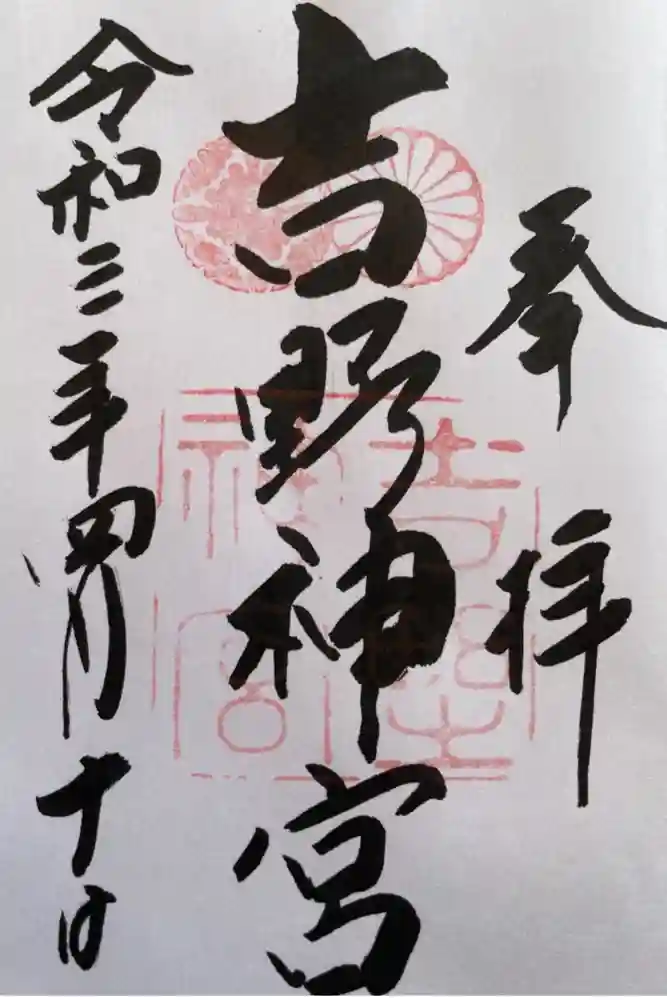 奉拝
吉野神宮
吉野神宮
令和三年四月十日